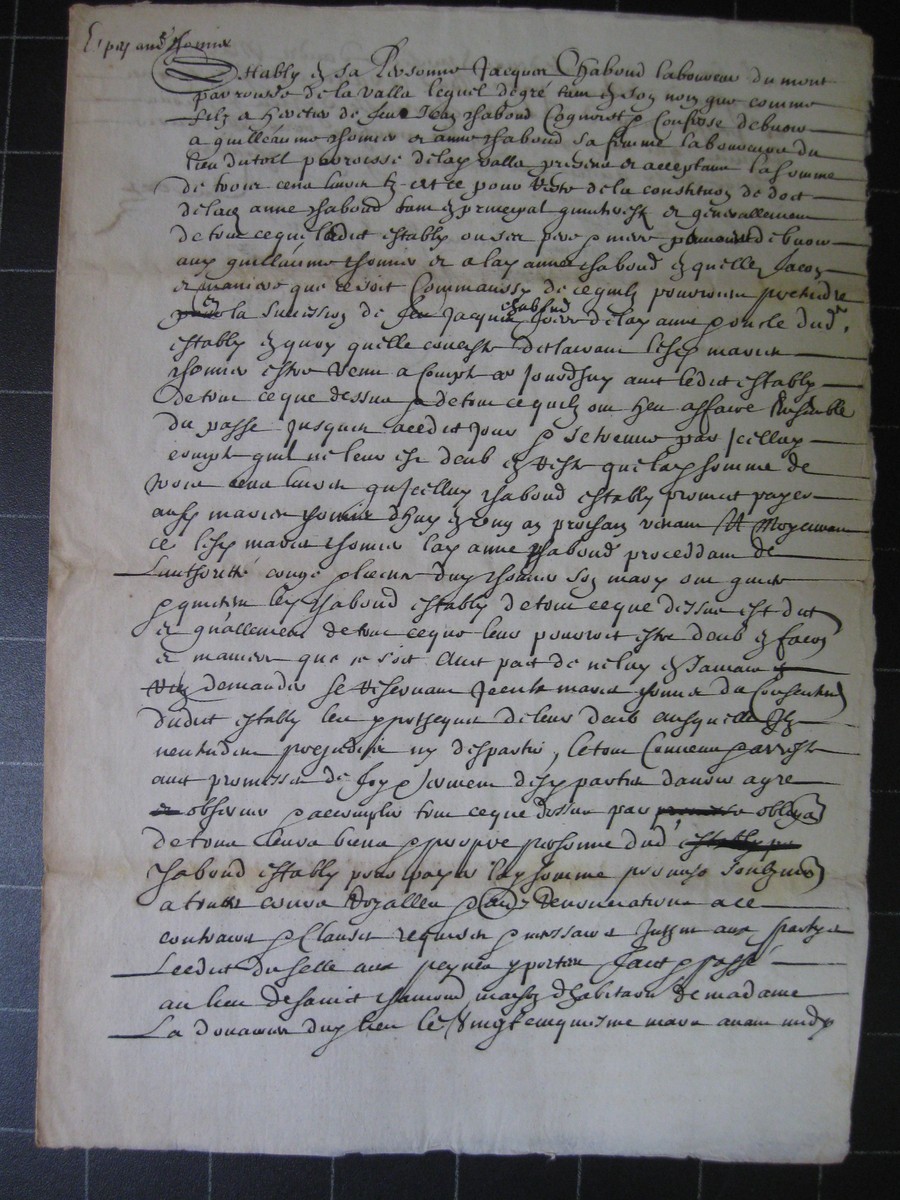 Estably en sa Personne Jacques Chabond laboureur du mont
parroisse de la valla lequel de gré tant en son nom que comme
filz et heretier de feu Jean Chabond Cognoist et Confesse debvoir
a guilleaume thomier et anne chabond sa femme laboureurs du
lieu du toil parroisse de lad valla presens et acceptans la somme
de trois cens livres tz et ce pour reste de la constitution de dot
de lad anne chabond tant en principal et generallement
de tout ce que ledict estably ou ses pere et mere debvoir
aux guillaume thomier et a lad anne chabond en quelle facon
et maniere que ce soit Comm'aussy de ce quilz pourroient pretendre
en la sucession de feu Jacques chabond frere de lad anne oncle dud
estably en quoy quelle concste declairant lesd mariez
thomier estre venu a compte ce jourdhuy avec ledict estably
de tout ce que dessus et de tout ce quilz ont heu affaire ensemble
du passe jusques a cedict jour et setreuve par jcelluy
compte quil ne leur est deub en reste que lad somme de
trois cens livres qu'jcelluy chabond estably promect payer
ausd mariez thomier dhuy en ung an prochain venant Et Moyennant
ce lesd mariez thomier lad anne chabond proceddant de
Lauthorité conge et licence dud thomier son mary ont quicte
et quictent led chabond estably de tout ce que dessus est dict
et gnallement de tout ce que leur pourroit estre deub en facon
et maniere que ce soit Avec pact de ne luy en Jamais
rien demander Se reservant jceulx mariez thomier du Consentement
dudict estably lieu et ypotheque de leur deub ausquelz Ilz
nentendent prejudicier ny despartir, le tout Convenu et arresté
avec promesses de foy et serment desd parties davoir agre
observer et accomplir tout ce que dessus par oblign
de tous leurs biens et propre personne dud
chabond estably pour payer lad somme promise soubzmis
a toutes cours Royalles et aultres Renonciations a ce
contraires et Clauses requises et necessaires
Ledict du selle aux peynes y portees faict et passé
au lieu de sainct chamond, maison dhabitation de madame
La douairiere dud lieu le Vingtcinquiesme mars avant midy